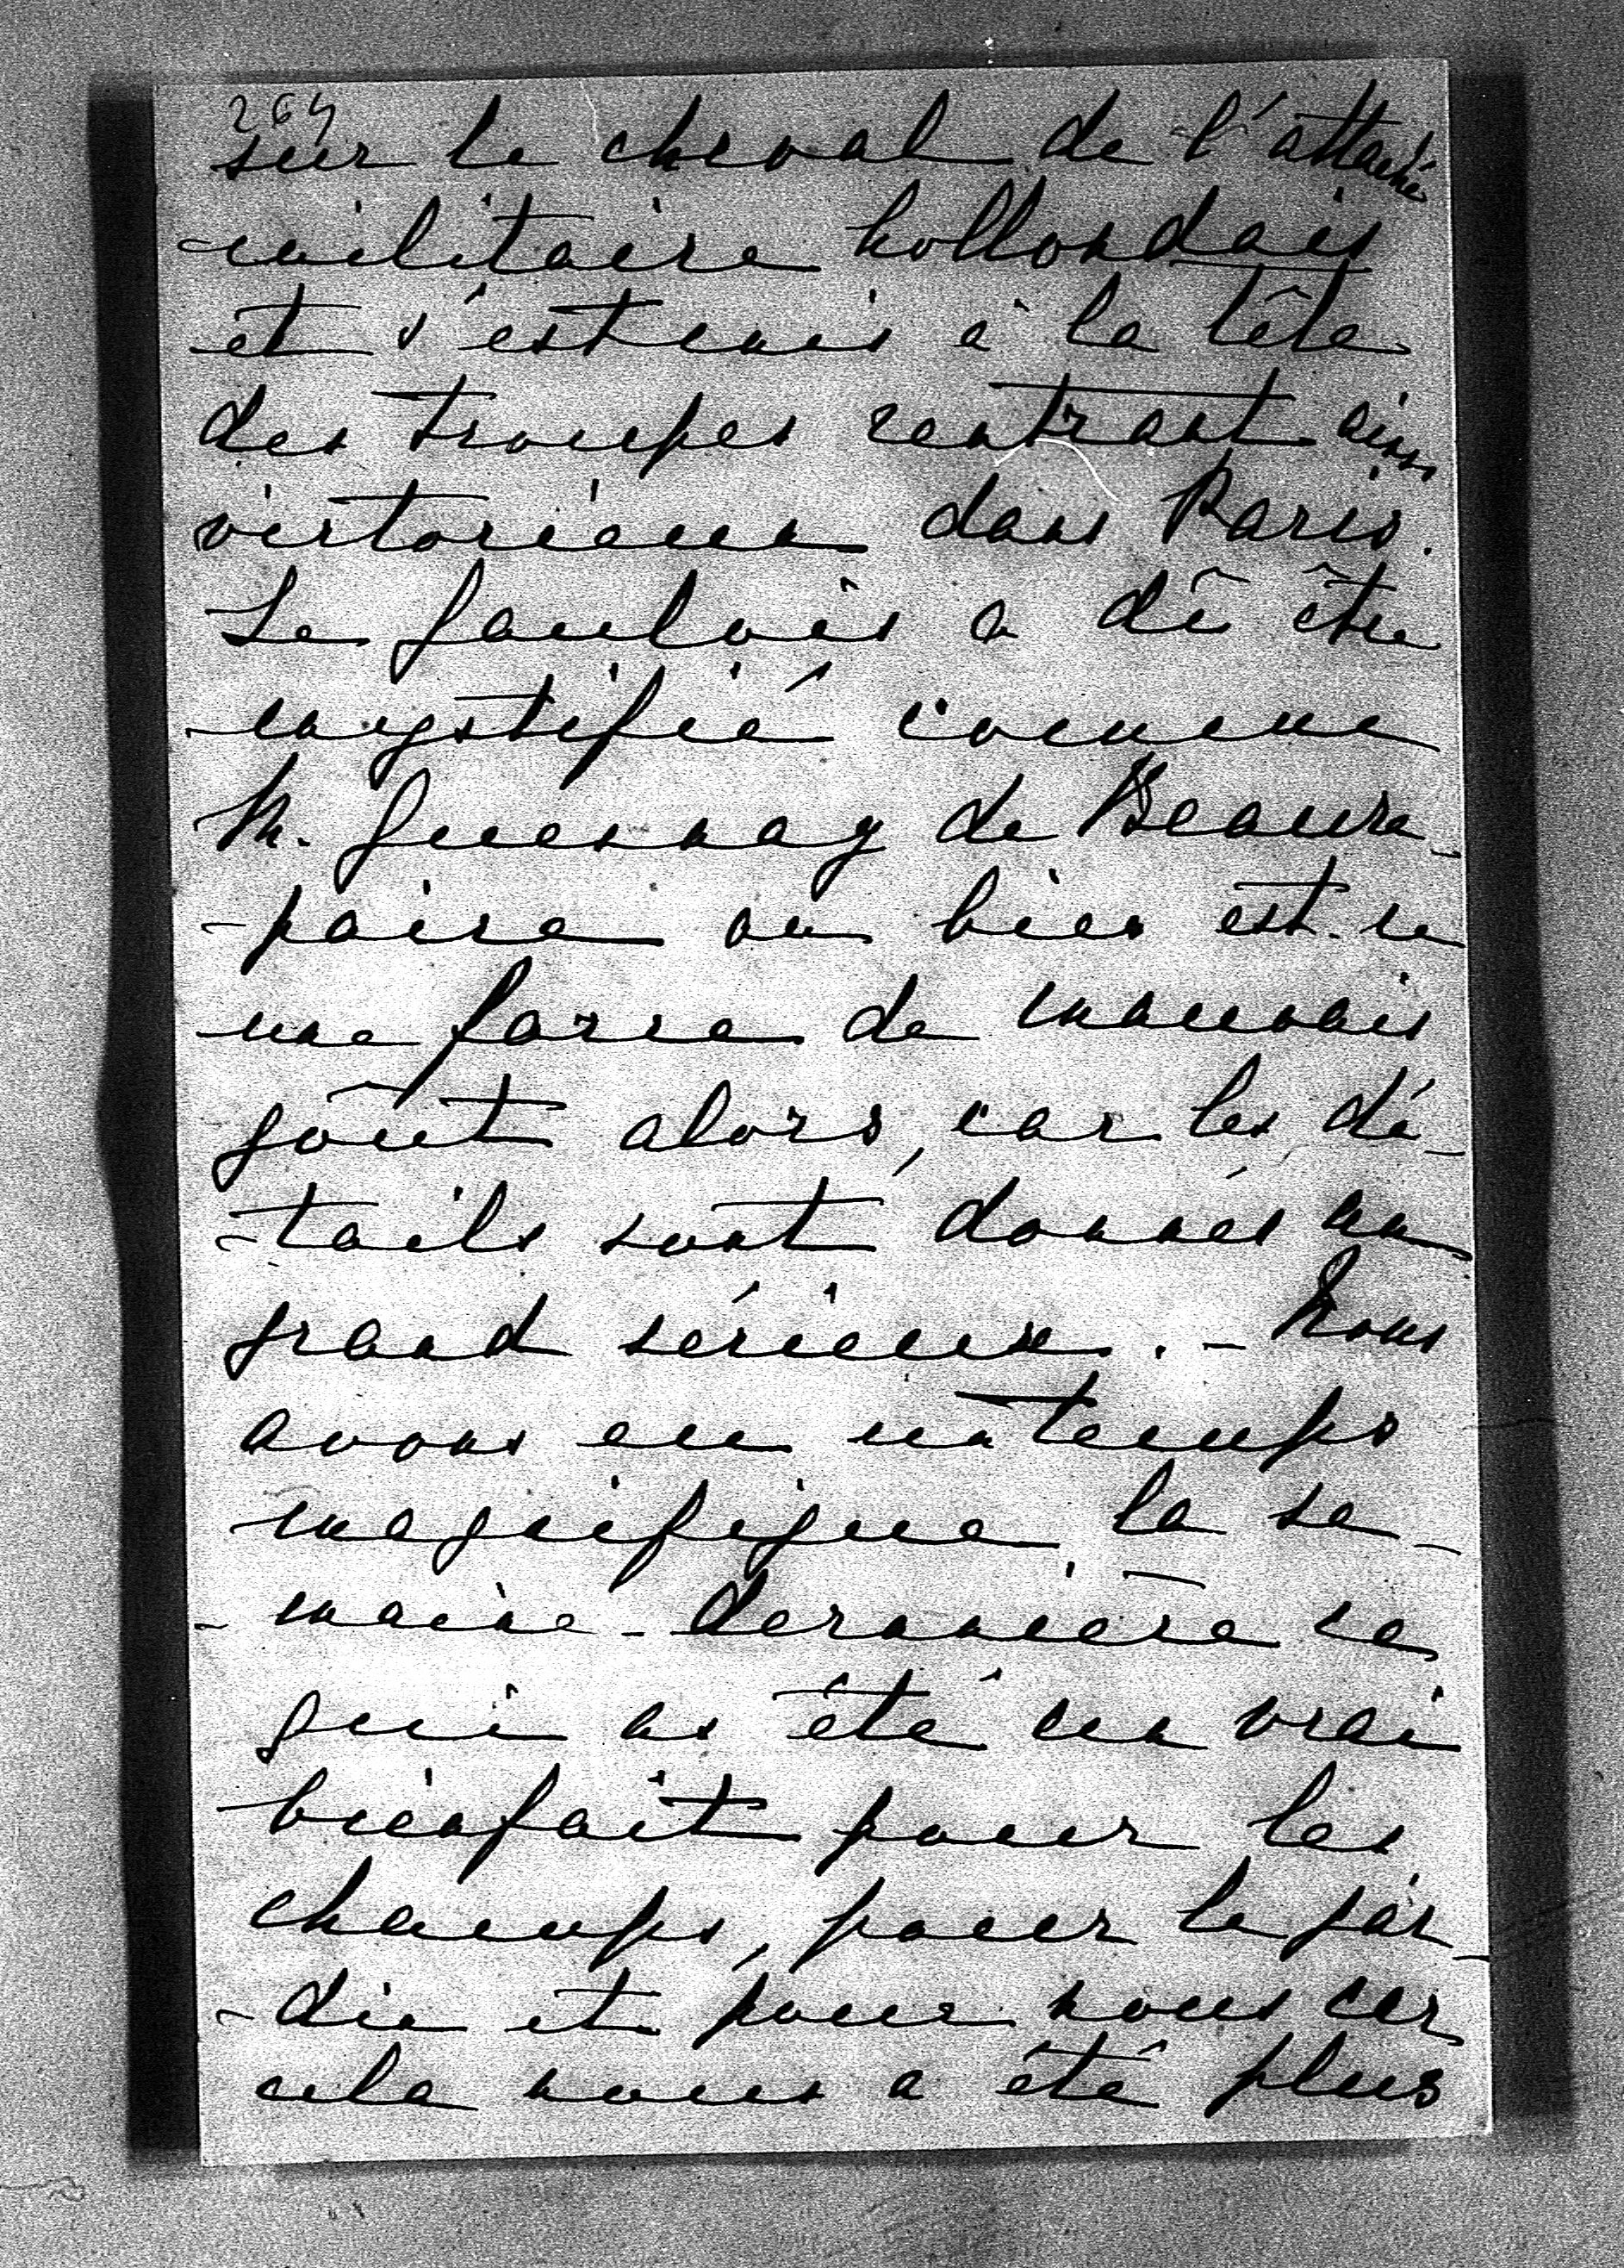 264
sur le cheval de l'attaché
militaire hollandais
et s'est mis à la tête
des troupes rentrant ainsi
victorieux dans Paris.
Le Gaulois a dû être
mystifié comme
M. Quesnay de Beaure-
-paire ou bien est-ce
une farce de mauvais
goût alors, car les dé-
-tails sont donnés au
grand sérieux. - Nous
avons eu un temps
magnifique la se-
-maine dernière ce
qui as été un vrai
bienfait pour les
champs, pour le jar-
-din et pour nous car
cela nous a été plus